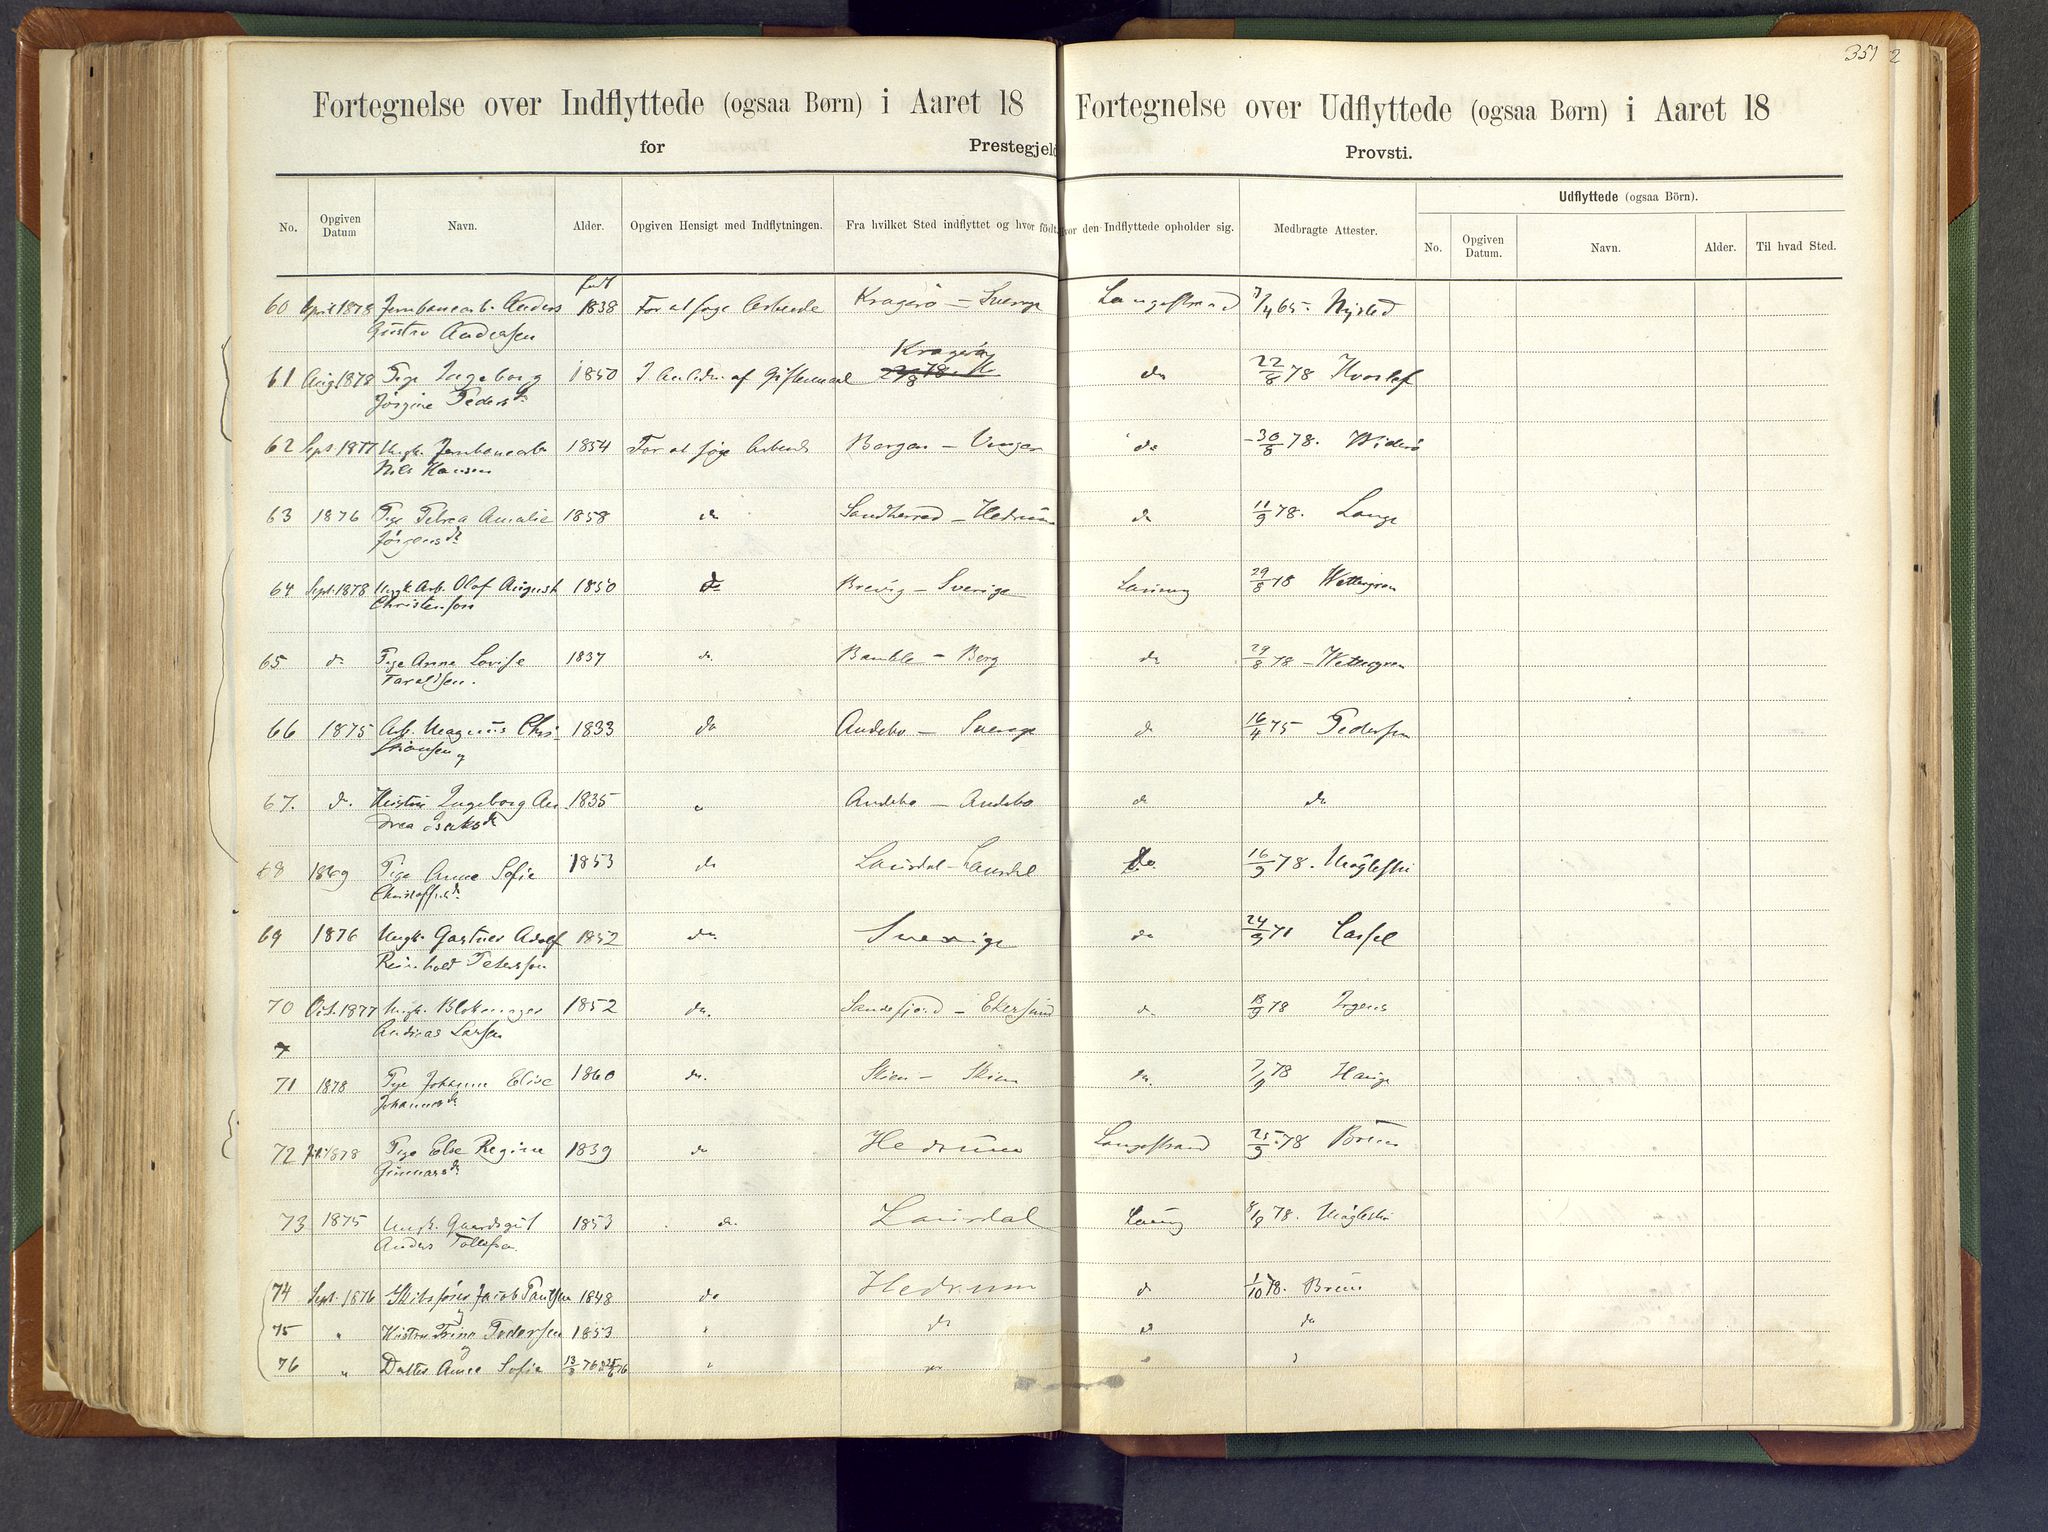 351 2
Fortegnelse over Indflyttede (ogsaa Børn) i Aaret 18
for Prestegjeld
Fortegnelse over Udflyttede (ogsaa Børn) i Aaret 18
Provsti.
No. Opgiven Datum Navn. Alder. Opgiven Hensigt med Indflytningen. Fra hvilket Sted indflyttet og hvor født. Hvor den Indflyttede opholder sig. Medbragte Attester.
Udflyttede (ogsaa Börn).
No. Opgiven Datum. Navn. Alder. Til hvad Sted.
født
60 April 1878 Jernbanearb. Anders 1838 For at søge Arbeide Kragerö – Sverige Langestrand 7/4 65. Nysted
Gustav Andersen
Kragerö
61 Aug 1878 Pige Ingeborg 1850 I Anledn. af Giftermaal do 22/8 78 Hvoslef
Jörgine Pedersdr
62 Sept 1877 Ungk. Jernbanearb 1854 For at søge Arbeide Borgen – do 30/8 78. Widerö
Nils Hansen
63 1876 Pige Petrea Amalie 1858 do Sandherred – Hedrum do 11/9 78. Lange
Jörgensdr
64 Sept. 1878 Ungk. Arb. Olof August 1850 do Brevig – Sverige Laurvig 29/8 78 Wettergren
Christenson
65 do Pige Anna Lovise 1837 do. Bamble – Berg do 29/8 78 – Wettergren
Taraldsen.
66 1875 Arb. Magnus Chri- 1833 do Andebo – Sverige do 16/4 75 Pedersen
stiansen og
67. do. Hustru Ingeborg An- 1835 " Andebo – Andebo do do
drea Isaksdr
68 1869 Pige Anne Sofie 1853 do Laurdal – Laurdal do. 16/9 78. Maglestu
Christoffersdr.
69 1876 Ungk. Gartner Adolf 1852 do. Sverige do 24/9 71 Cassel
Reinhold Petersson
70 Oct. 1877 Ungk. Blokmager 1852 do. Sandefjord – Ekersund do 18/9 78 Irgens
Andreas Larsen
71 1878 Pige Johanne Elise 1860 do. Skien – Skien do. 7/9 78 Hauge
Johannesdr
72 1878 Pige Else Regine 1839 do Hedrum Langestrand 25/9 78 Bruun
Gunnarsdr
73 1875 Ungk. Gaardsgut 1853 do. Laurdal Laurvig 8/9 78. Maglestu
Anders Tollefsen
74 Sept. 1876 Skibsförer Jacob Paulsen 1848 do Hedrum do 1/10 78. Bruun
og
75 " Hustru Trine Pedersen 1853 " do do do
og
76 " Datter Anne Sofie 13/3 76 " "